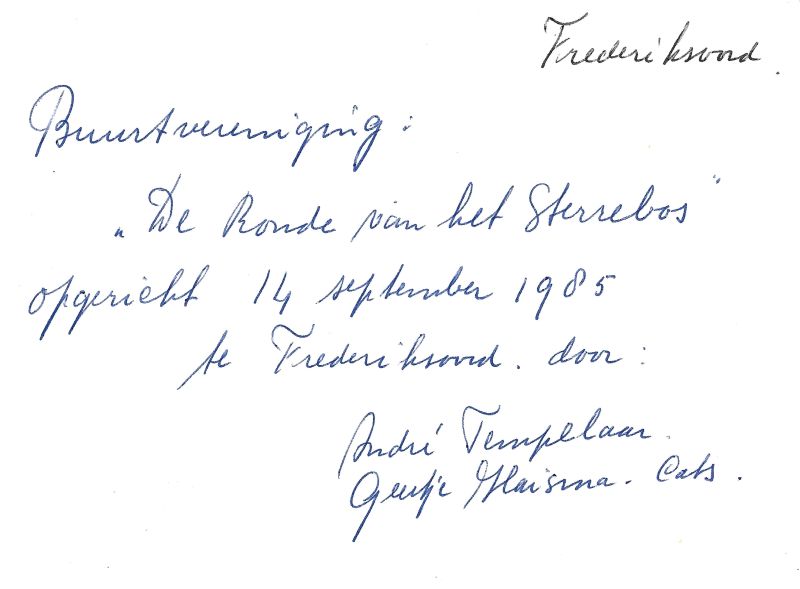 Frederiksoord.
Buurtvereniging:
„De Ronde van het Sterrebos"
opgericht 14 september 1985
te Frederiksoord. door:
André Tempelaar.
Geertje Haisma. Cats.